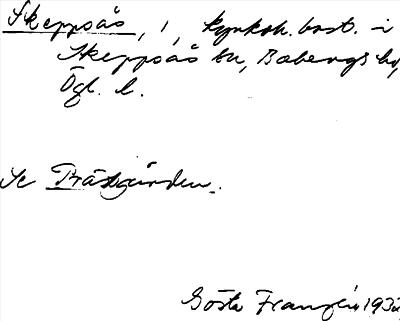 Skeppsås, 1, kyrkoh. bost. i
Skeppsås sn, Bobergs hd,
Ögl. l.
Se Prästgården.
Gösta Franzén 1932